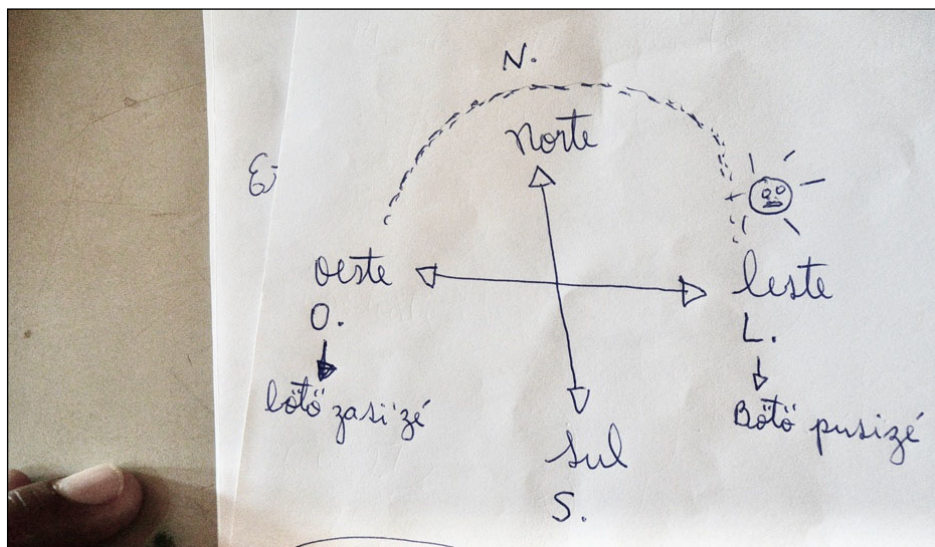 N.
Norte
oeste
O.
bötö zasi'zé
leste
L.
Bötö pusizé
sul
S.